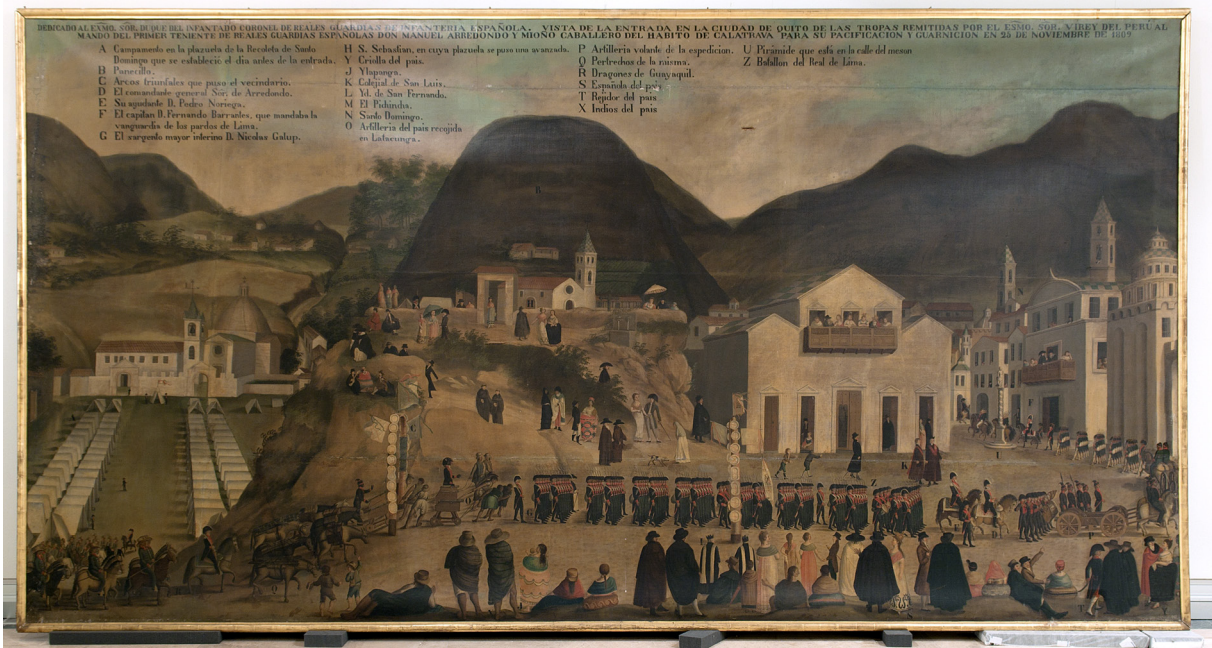 DEDICADO AL EXMO. SOR. DUQUE DEL INFANTADO CORONEL DE REALES GUARDIAS DE INFANTERIA ESPAÑOLA. VISTA DE LA ENTRADA EN LA CIUDAD DE QUITO DE LAS TROPAS REMITIDAS POR EL ESMO. SOR. VIREY DEL PERU AL
MANDO DEL PRIMER TENIENTE DE REALES GUARDIAS ESPAÑOLAS DON MANUEL ARREDONDO Y MIOÑO CABALLERO DEL HABITO DE CALATRAVA PARA SU PACIFICACION Y GUARNICION EN 25 DE NOVIEMBRE DE 1809
A Campamento en la plazuela de la Recoleta de Santo
Domingo que se estableció el dia antes de la entrada.
B Panecillo.
C Arcos triunfales que puso el vecindario.
D El comandante general Sór. de Arredondo.
E Su ayudante D. Pedro Noriega.
F El capitan D. Fernando Barrantes, que mandaba la
vanguardia de los pardos de Lima.
G El sargento mayor interino D. Nicolas Galup.
H S. Sebastian, en cuya plazuela se puso una avanzada.
Y Criolla del pais.
J Ylapanga.
K Colejial de San Luis.
L Yd. de San Fernando.
M El Pichincha.
N Santo Domingo.
O Artilleria del pais recojida
en Latacunga.
P Artilleria volante de la espedicion.
Q Pertrechos de la misma.
R Dragones de Guayaquil.
S Española del pais
T Rejidor del pais
X Indios del pais
U Pirámide que está en la calle del meson
Z Batallon del Real de Lima.
B
K
Z